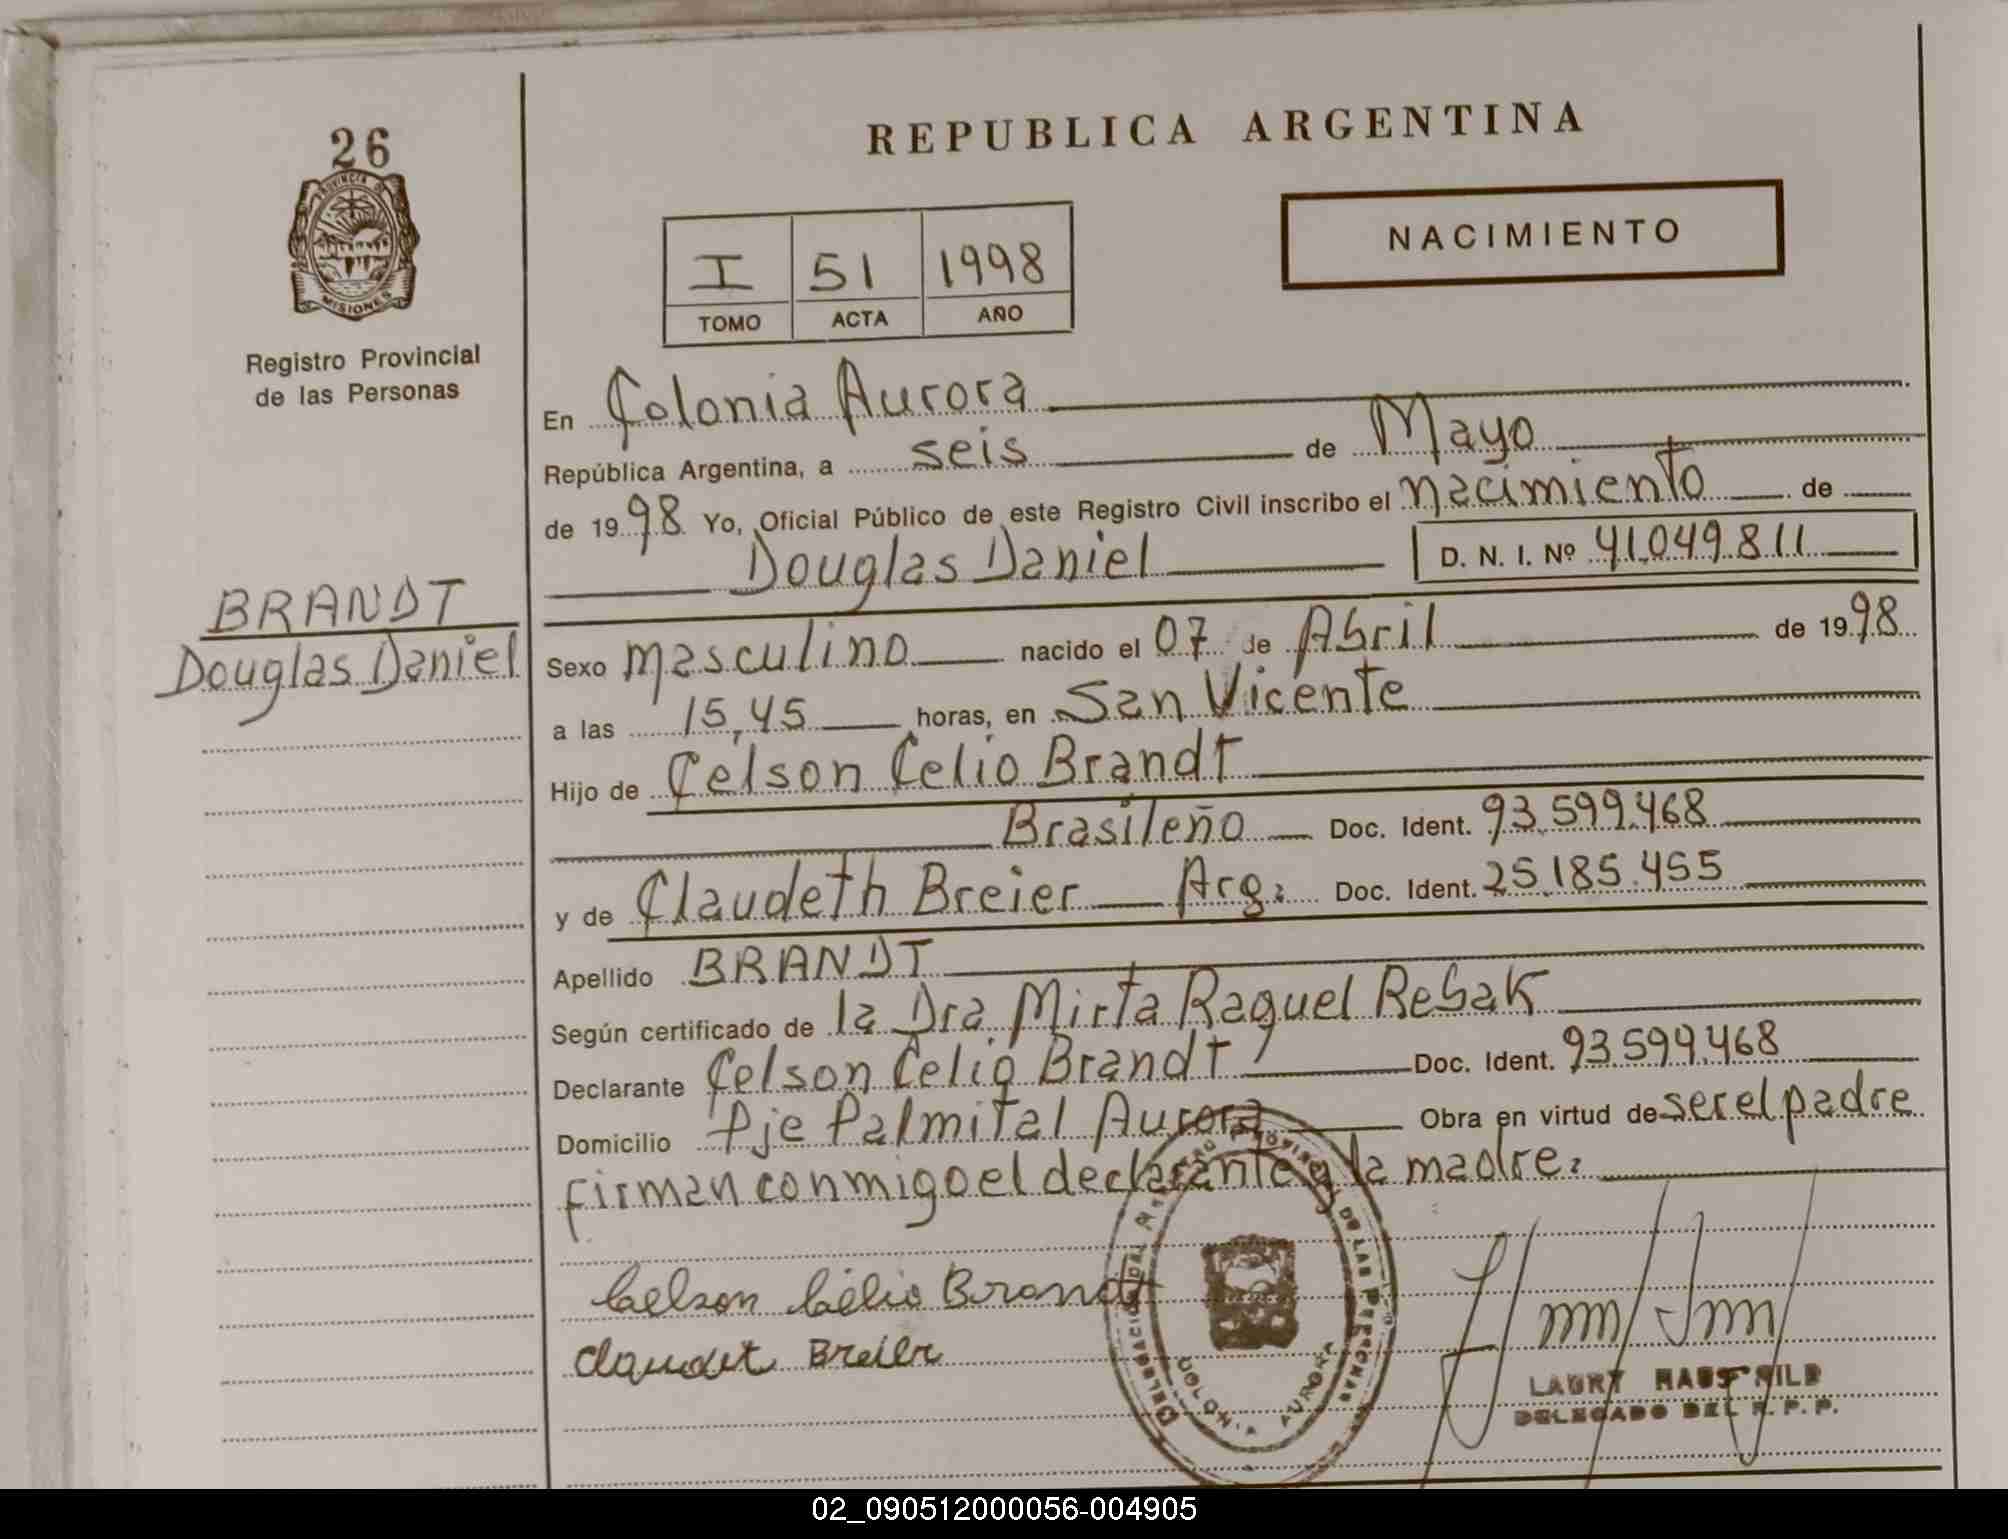 26
PROVINCIA DE
MISIONES
Registro Provincial
de las Personas
BRANDT
Douglas Daniel
REPUBLICA ARGENTINA
NACIMIENTO
I 51 1998
TOMO ACTA AÑO
En Colonia Aurora
República Argentina, a seis de Mayo
de 1998 Yo, Oficial Público de este Registro Civil inscribo el nacimiento de
Douglas Daniel D. N. I. Nº 41.049.811
Sexo masculino nacido el 07 de Abril de 1998
a las 15,45 horas, en San Vicente
Hijo de Celson Celio Brandt
Brasileño Doc. Ident. 93.599.468
y de Claudeth Breier Arg: Doc. Ident. 25.185.455
Apellido BRANDT
Según certificado de la Dra Mirta Raquel Rebak
Declarante Celson Celio Brandt Doc. Ident. 93.599.468
Domicilio Pje Palmital Aurora Obra en virtud de ser el padre
firman conmigo el declarante y la madre:
DELEGACION DEL REGISTRO PROVINCIAL DE LAS PERSONAS
COLONIA AURORA
Celson Célio Brandt
Claudet Breier
LAURY
DELEGADO DEL R. P. P.
02_090512000056-004905